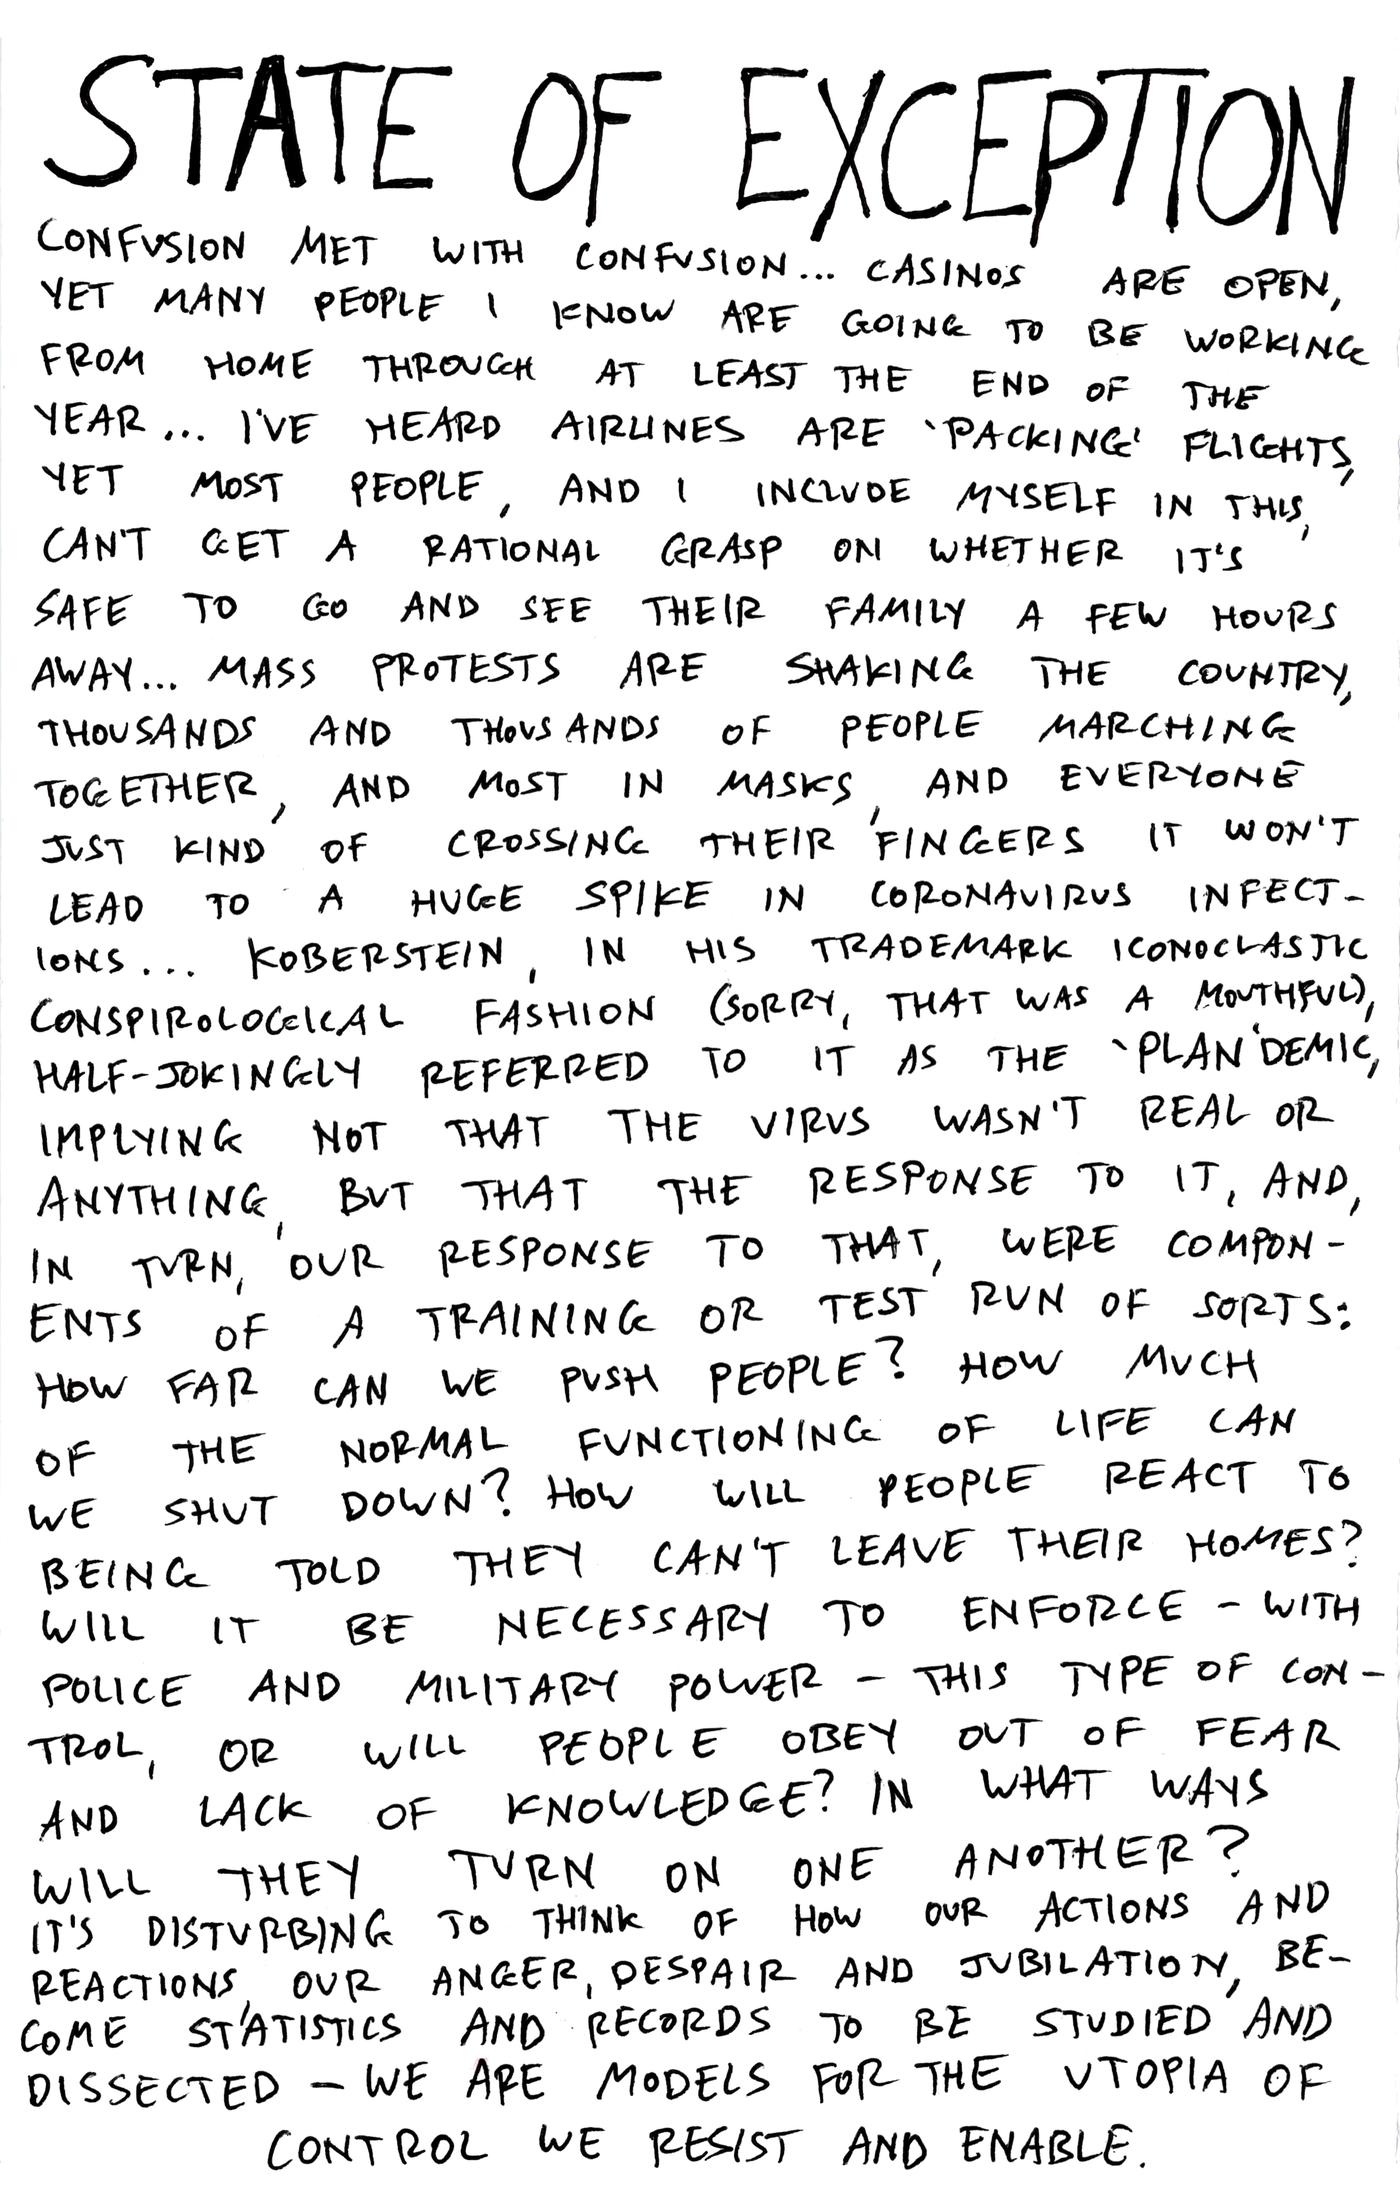 STATE OF EXCEPTION
CONFUSION MET WITH CONFUSION... CASINOS ARE OPEN,
YET MANY PEOPLE I KNOW ARE GOING TO BE WORKING
FROM HOME THROUGH AT LEAST THE END OF THE
YEAR... I'VE HEARD AIRLINES ARE 'PACKING' FLIGHTS,
YET MOST PEOPLE, AND I INCLUDE MYSELF IN THIS,
CAN'T GET A RATIONAL GRASP ON WHETHER IT'S
SAFE TO GO AND SEE THEIR FAMILY A FEW HOURS
AWAY... MASS PROTESTS ARE SHAKING THE COUNTRY,
THOUSANDS AND THOUSANDS OF PEOPLE MARCHING
TOGETHER, AND MOST IN MASKS, AND EVERYONE
JUST KIND OF CROSSING THEIR FINGERS IT WON'T
LEAD TO A HUGE SPIKE IN CORONAVIRUS INFECT-
IONS... KOBERSTEIN, IN HIS TRADEMARK ICONOCLASTIC
CONSPIROLOGICAL FASHION (SORRY, THAT WAS A MOUTHFUL),
HALF-JOKINGLY REFERRED TO IT AS THE 'PLAN'DEMIC,
IMPLYING NOT THAT THE VIRUS WASN'T REAL OR
ANYTHING, BUT THAT THE RESPONSE TO IT, AND,
IN TURN, OUR RESPONSE TO THAT, WERE COMPON-
ENTS OF A TRAINING OR TEST RUN OF SORTS:
HOW FAR CAN WE PUSH PEOPLE? HOW MUCH
OF THE NORMAL FUNCTIONING OF LIFE CAN
WE SHUT DOWN? HOW WILL PEOPLE REACT TO
BEING TOLD THEY CAN'T LEAVE THEIR HOMES?
WILL IT BE NECESSARY TO ENFORCE - WITH
POLICE AND MILITARY POWER - THIS TYPE OF CON-
TROL, OR WILL PEOPLE OBEY OUT OF FEAR
AND LACK OF KNOWLEDGE? IN WHAT WAYS
WILL THEY TURN ON ONE ANOTHER?
IT'S DISTURBING TO THINK OF HOW OUR ACTIONS AND
REACTIONS, OUR ANGER, DESPAIR AND JUBILATION, BE-
COME STATISTICS AND RECORDS TO BE STUDIED AND
DISSECTED - WE ARE MODELS FOR THE UTOPIA OF
CONTROL WE RESIST AND ENABLE.